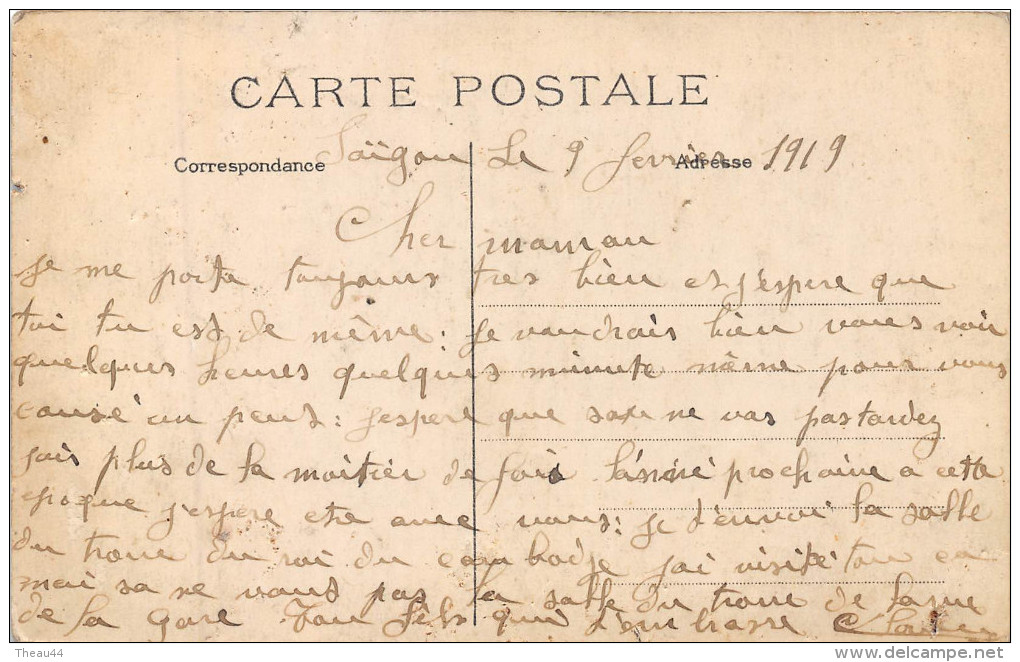 CARTE POSTALE
Correspondance
Adresse
Saïgon Le 9 fevrier 1919
Cher maman
Je me porte toujours tres bien et j'espere que
toi tu est de même: Je voudrais bien vous voir
quelques heures quelques minute même pour vous
causé un peut: j'espere que sa ne vas pas tardez
jais plus de la moitier de fais l'année prochaine a cette
epoque j'espere etre avec vous: je t'envoi la salle
du trone du roi du cambodje j'ai visité tou ca
mai sa ne vaut pas la salle du trone de la rue
de la Gare Ton fils qui t'embrasse
Theau44
delcampe.net